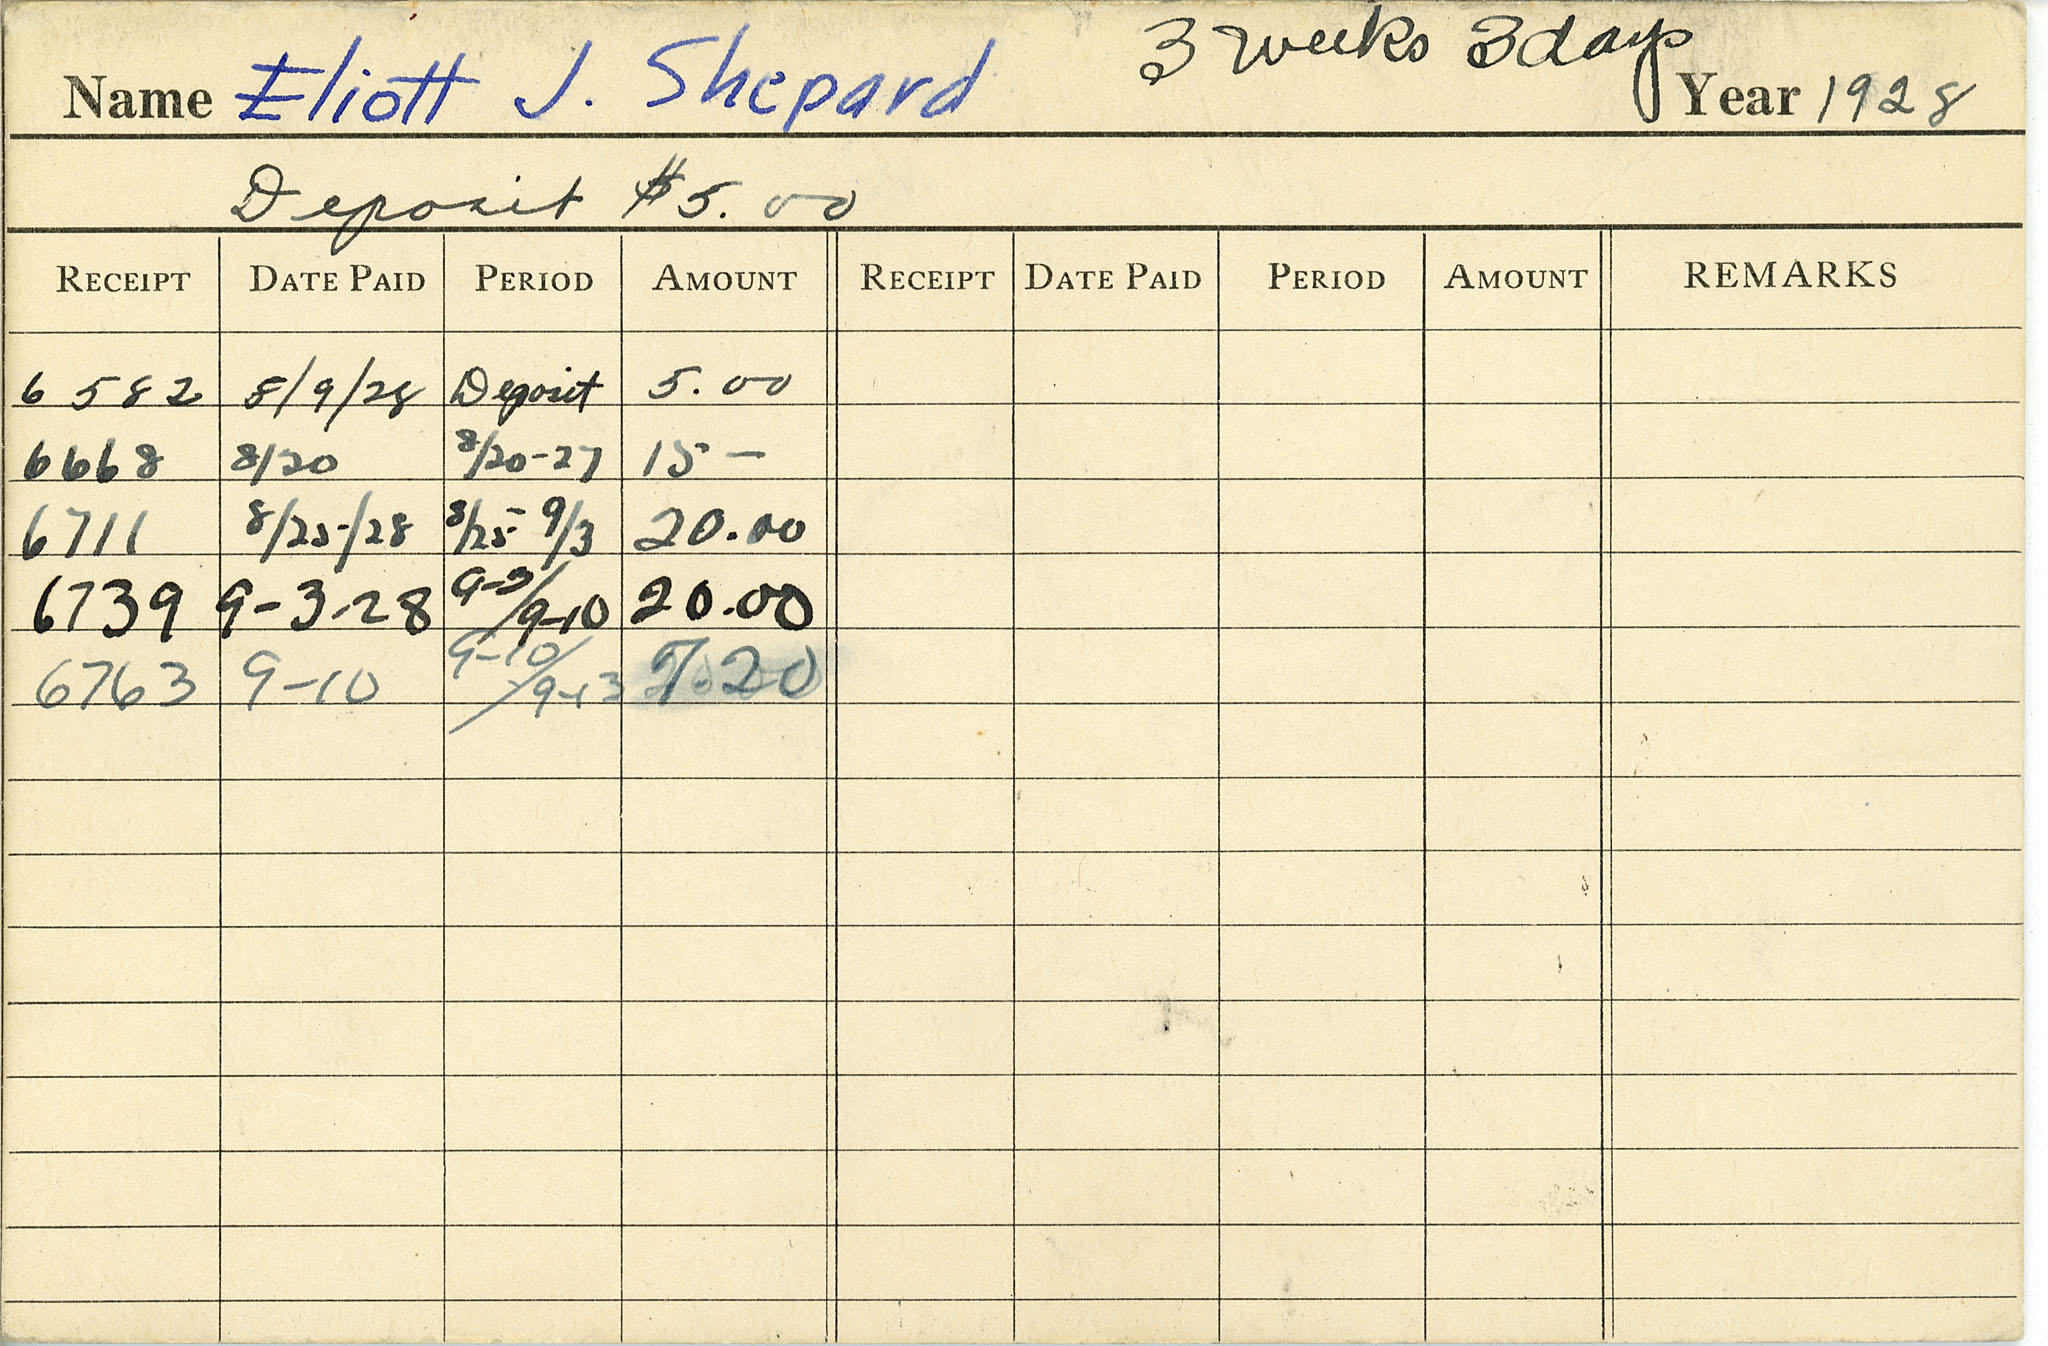 3 weeks 3 days
Name Eliott J. Shepard Year 1928
Deposit $5.00
RECEIPT DATE PAID PERIOD AMOUNT RECEIPT DATE PAID PERIOD AMOUNT REMARKS
6582 8/9/28 Deposit 5.00
6668 8/20 8/20-27 15-
6711 8/25/28 8/25-9/3 20.00
6739 9-3-28 9-3/9-10 20.00
6763 9-10 9-10/9-13 7.20